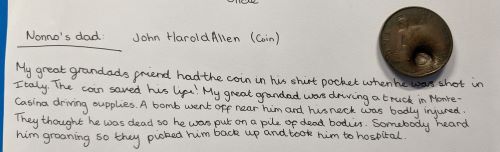 Nonno's dad: John Harold Allen (Coin)
My great grandads friend had the coin in his shirt pocket when he was shot in
Italy. The coin saved his life! My great grandad was driving a truck in Monte-
Casina driving supplies. A bomb went off near him and his neck was badly injured.
They thought he was dead so he was put on a pile of dead bodies. Somebody heard
him groaning so they picked him back up and took him to hospital.